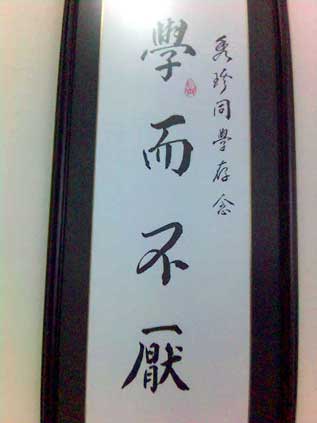 秀珍同學存念
學而不厭